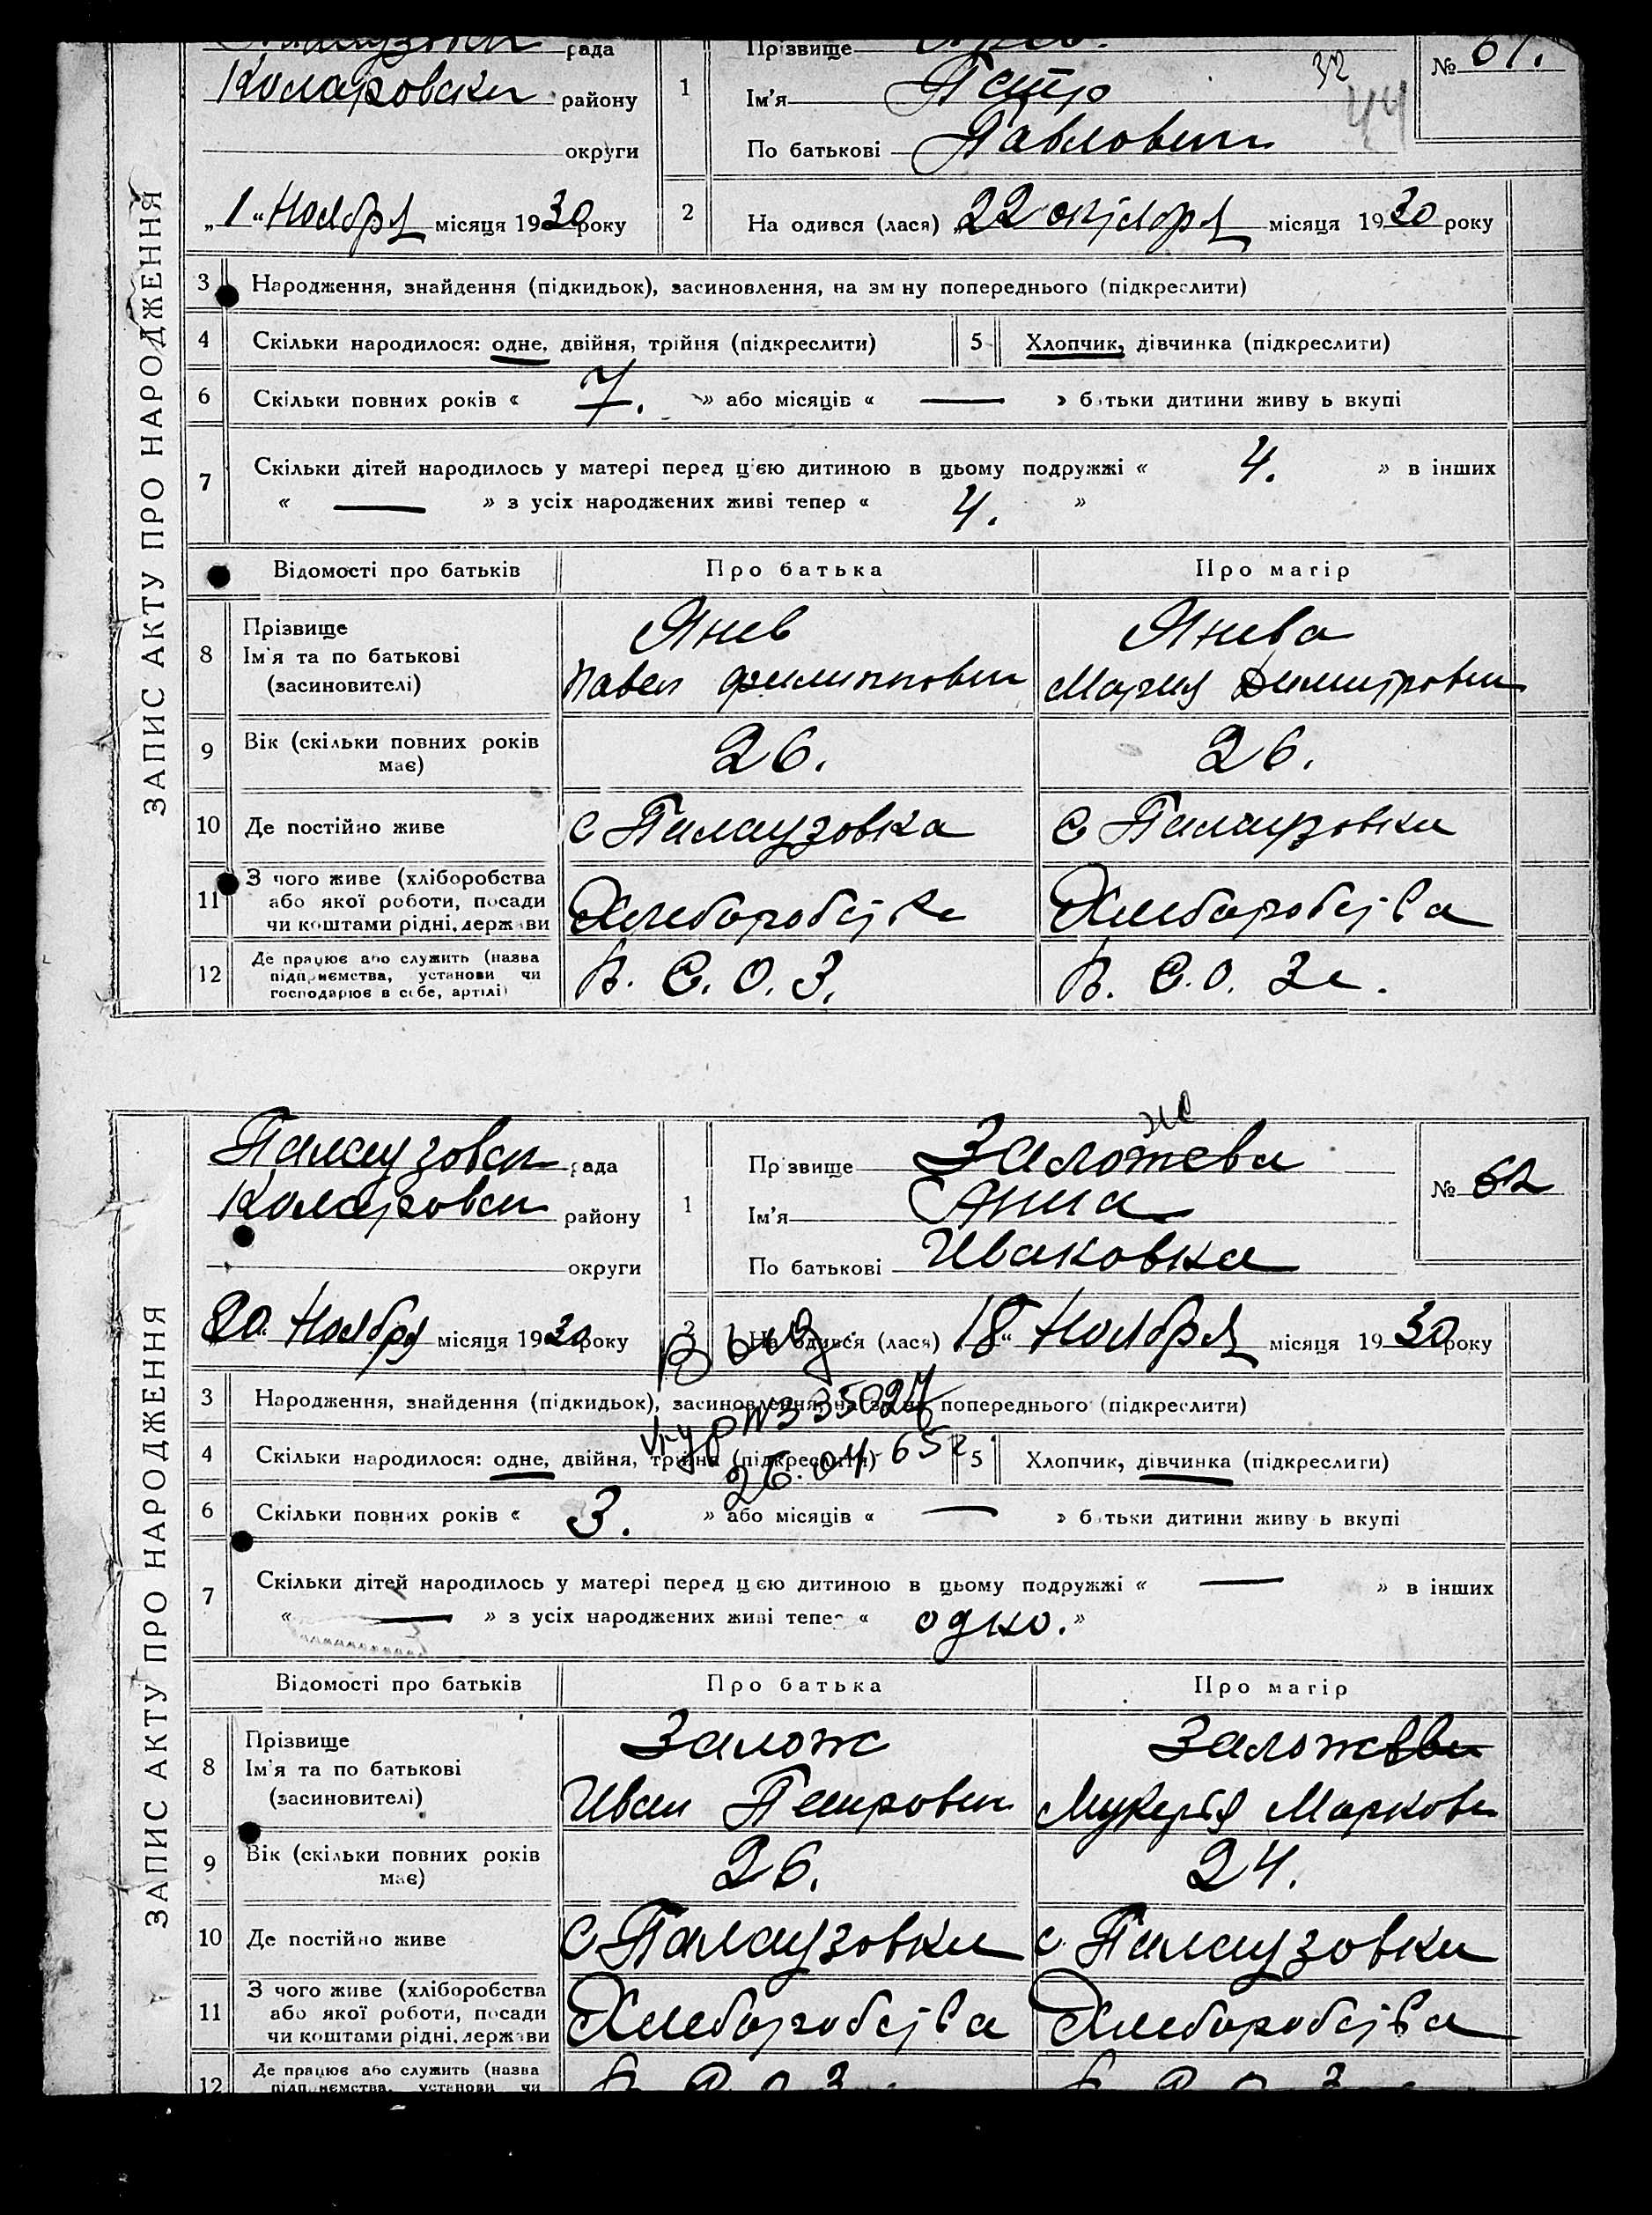 ЗАПИС АКТУ ПРО НАРОДЖЕННЯ
рада
Коларовски району
округи
„1“ Ноября місяця 1930 року
1
Прізвище
Ім'я Петр
По батькові Павлович
32
44
№ 61.
2 На одився (лася) „22 октября місяця 1930 року
3 Народження, знайдення (підкидьок), засиновлення, на зм ну попереднього (підкреслити)
4 Скільки народилося: одне, двійня, трійня (підкреслити) 5 Хлопчик, дівчинка (підкреслити)
6 Скільки повних років « 7. » або місяців « — » батьки дитини живу ь вкупі
7 Скільки дітей народилось у матері перед цією дитиною в цьому подружжі « 4. » в інших
« — » з усіх народжених живі тепер « 4. »
Відомості про батьків Про батька Про матір
8 Прізвище Янев Янева
Ім'я та по батькові Павел Филиппович Мария Димитровн
(засиновителі)
9 Вік (скільки повних років має) 26. 26.
10 Де постійно живе с Палаузовка с Палаузовка
11 З чого живе (хліборобства
або якої роботи, посади
чи коштами рідні, держави Хлеборобства Хлеборобства
12 Де працює або служить (назва
підприємства, установи чи
господарює в себе, артілі) В. С. О. З. В. С. О. Зе.
ЗАПИС АКТУ ПРО НАРОДЖЕННЯ
Палаузовск рада
Коларовск району
округи
20 Ноября місяця 1930 року
1
ж
Прізвище Заложева
Ім'я Анна
По батькові Ивановна
№ 62
2 На одився (лася) 18“ Ноября місяця 1930 року
3 Народження, знайдення (підкидьок), засиновлення, на зм ну попереднього (підкреслити)
№ 335027
4 Скільки народилося: одне, двійня, трійня (підкреслити) 5 Хлопчик, дівчинка (підкреслити)
26.04 65г
6 Скільки повних років « 3. » або місяців « — » батьки дитини живу ь вкупі
7 Скільки дітей народилось у матері перед цією дитиною в цьому подружжі « — » в інших
« — » з усіх народжених живі тепер « одно. »
Відомості про батьків Про батька Про матір
8 Прізвище Залож Заложева
Ім'я та по батькові Иван Петрович Маркови
(засиновителі)
9 Вік (скільки повних років має) 26. 24.
10 Де постійно живе с Палаузовки с. Палаузовки
11 З чого живе (хліборобства
або якої роботи, посади
чи коштами рідні, держави Хлеборобства Хлеборобства
12 Де працює або служить (назва
підприємства, установи чи